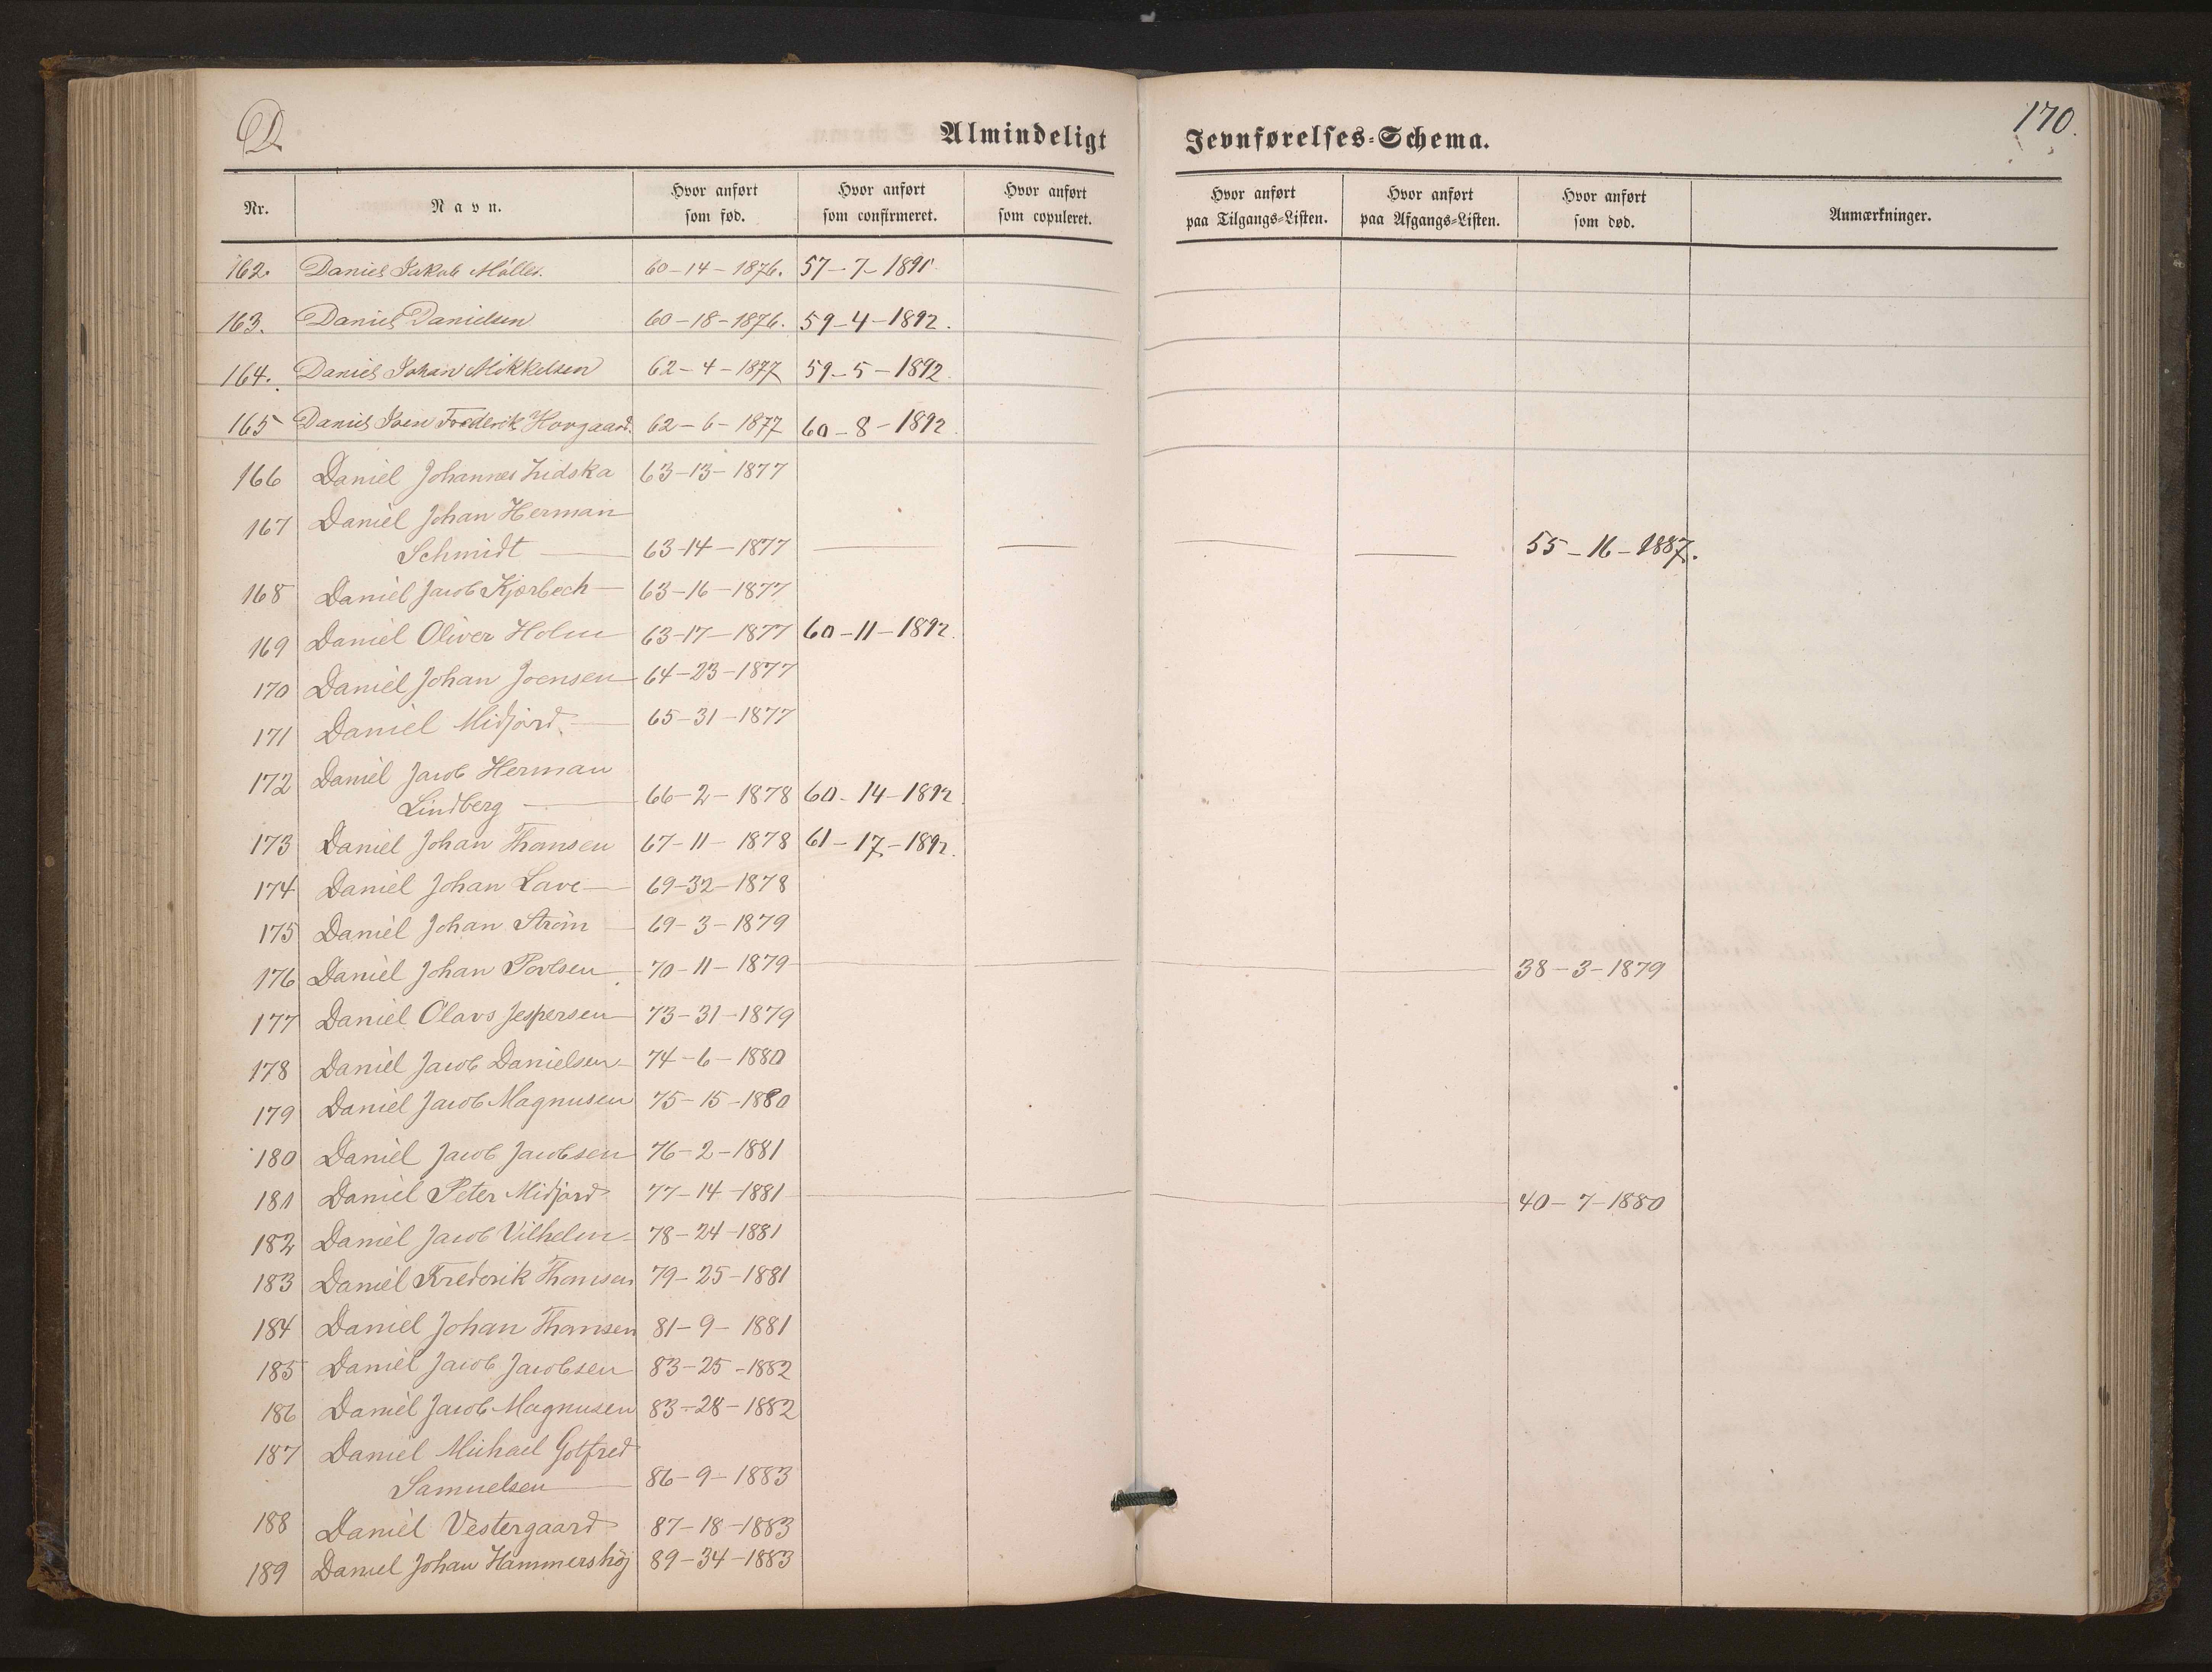 D
Almindeligt Jevnførelses-Schema.
170.
Nr. Navn. Hvor anført som fød. Hvor anført som confirmeret. Hvor anført som copuleret. Hvor anført paa Tilgangs-Listen. Hvor anført paa Afgangs-Listen. Hvor anført som død. Anmærkninger.
162. Daniel Jakob Møller. 60-14-1876. 57-7-1891
163. Daniel Danielsen 60-18-1876. 59-4-1892.
164. Daniel Johan Mikkelsen 62-4-1877 59-5-1892.
165 Daniel Sven Frederik Horgaard. 62-6-1877 60-8-1892.
166 Daniel Johannes Lidska 63-13-1877
167 Daniel Johan Herman
Schmidt — 63-14-1877 — — — — 55-16-1887.
168 Daniel Jacob Kjærbech — 63-16-1877
169 Daniel Oliver Holm 63-17-1877 60-11-1892.
170 Daniel Johan Joensen 64-23-1877
171 Daniel Midjord. — 65-31-1877
172 Daniel Jacob Herman
Lindberg — 66-2-1878 60-14-1892
173 Daniel Johan Thomsen 67-11-1878 61-17-1892.
174 Daniel Johan Lave — 69-32-1878
175 Daniel Johan Strøm — 69-3-1879
176 Daniel Johan Povlsen 70-11-1879 — — — — 38-3-1879
177 Daniel Olavs Jespersen 73-31-1879
178 Daniel Jacob Danielsen 74-6-1880
179 Daniel Jacob Magnusen 75-15-1880
180 Daniel Jacob Jacobsen 76-2-1881
181 Daniel Peter Midjord 77-14-1881 — — — — 40-7-1880
182 Daniel Jacob Vilhelm 78-24-1881
183 Daniel Frederik Thomsen 79-25-1881
184 Daniel Johan Thomsen 81-9-1881
185 Daniel Jacob Jacobsen 83-25-1882
186 Daniel Jacob Magnusen 83-28-1882
187 Daniel Michael Gotfred
Samuelsen — 86-9-1883
188 Daniel Vestergaard 87-18-1883
189 Daniel Johan Hammershøj 89-34-1883